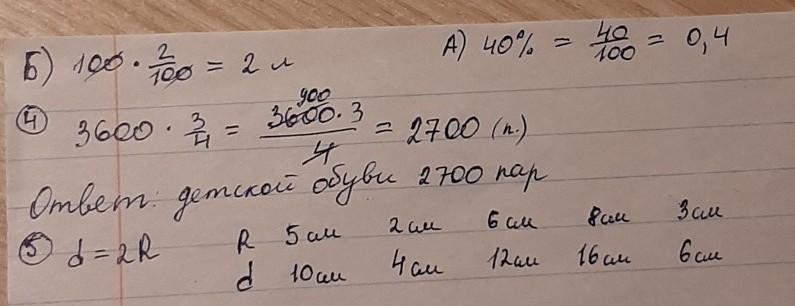 Б) 100 · 2/100 = 2 л
А) 40% = 40/100 = 0,4
④ 3600 · 3/4 = 900 3600 · 3 / 4 = 2700 (п.)
Ответ: детской обуви 2700 пар
⑤ d = 2R R 5см 2см 6см 8см 3см
d 10см 4см 12см 16см 6см